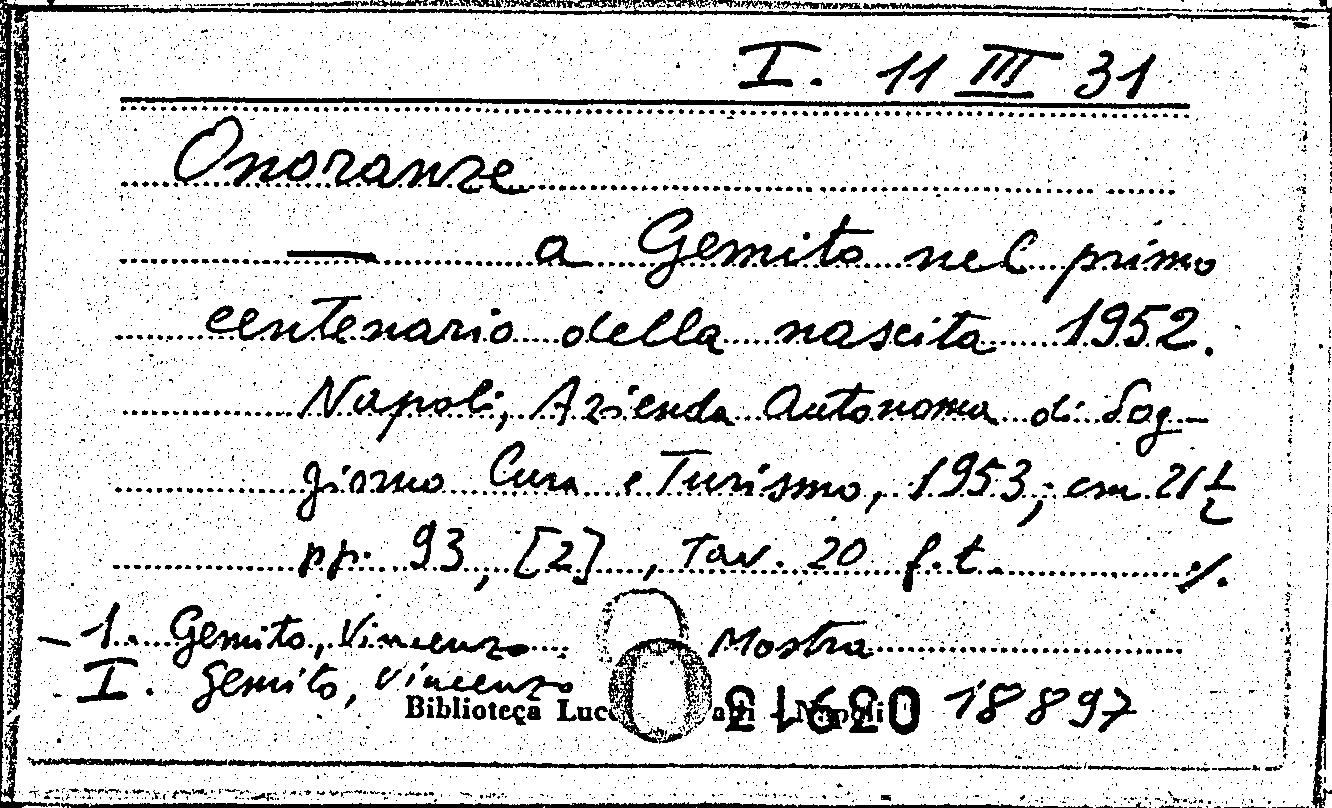 I. 11 III 31
Onoranze
— a Gemito nel primo
centenario della nascita 1952.
Napoli, Azienda Autonoma di Sog-
giorno Cura e Turismo, 1953; cm 21 1/2
pp. 93, [2], Tav. 20 f.t. ./.
- 1. Gemito, Vincenzo: Mostra
I. Gemito, Vincenzo
Biblioteca 18897